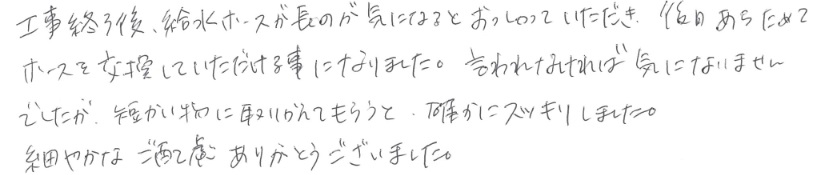 工事終了後、給水ホースが長のが気になるとおっしゃっていただき、後日あらためて
ホースを交換していただける事になりました。言われなければ気になりません
でしたが、短かい物に取りかえてもらうと、確かにスッキリしました。
細やかなご配慮ありがとうございました。